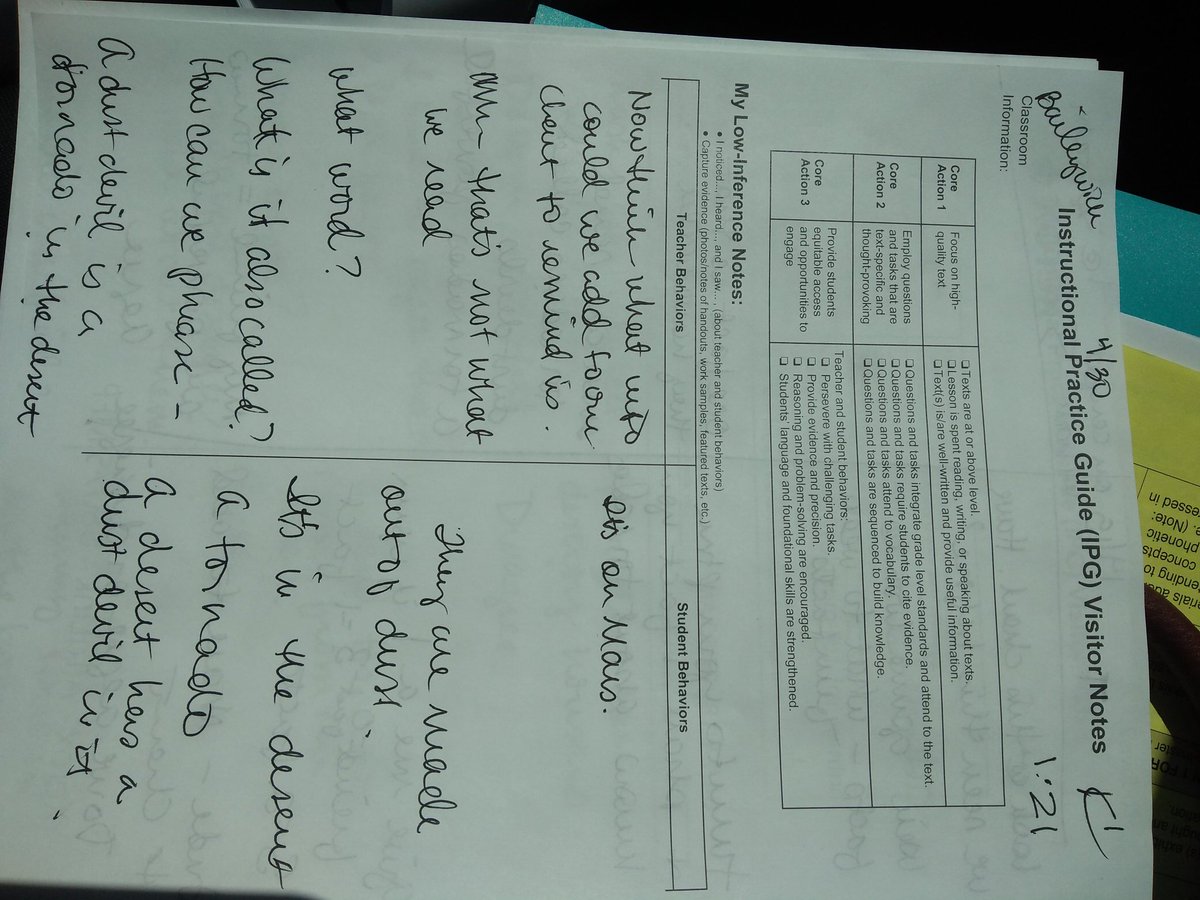 4/30
1:21
K
Instructional Practice Guide (IPG) Visitor Notes
Classroom
Information:
Core
Action 1
Focus on high-
quality text
❑Texts are at or above level.
❑Lesson is spent reading, writing, or speaking about texts.
❑Text(s) is/are well-written and provide useful information.
Core
Action 2
Employ questions
and tasks that are
text-specific and
thought-provoking
❑Questions and tasks integrate grade level standards and attend to the text.
❑Questions and tasks require students to cite evidence.
❑Questions and tasks attend to vocabulary.
❑Questions and tasks are sequenced to build knowledge.
Core
Action 3
Provide students
equitable access
and opportunities to
engage
Teacher and student behaviors:
❑ Persevere with challenging tasks.
❑ Provide evidence and precision.
❑ Reasoning and problem-solving are encouraged.
❑ Students' language and foundational skills are strengthened.
My Low-Inference Notes:
• I noticed..., I heard..., and I saw..., (about teacher and student behaviors)
• Capture evidence (photos/notes of handouts, work samples, featured texts, etc.)
Teacher Behaviors
Now think what info
could we add to our
chart to remind us.
that's not what
we need
what word?
What is it also called?
How can we phase -
A dust devil is a
tornado in the desert
Student Behaviors
It's on Mars.
They are made
out of dust
It's in the desert
a tornado
A desert has a
dust devil in it.